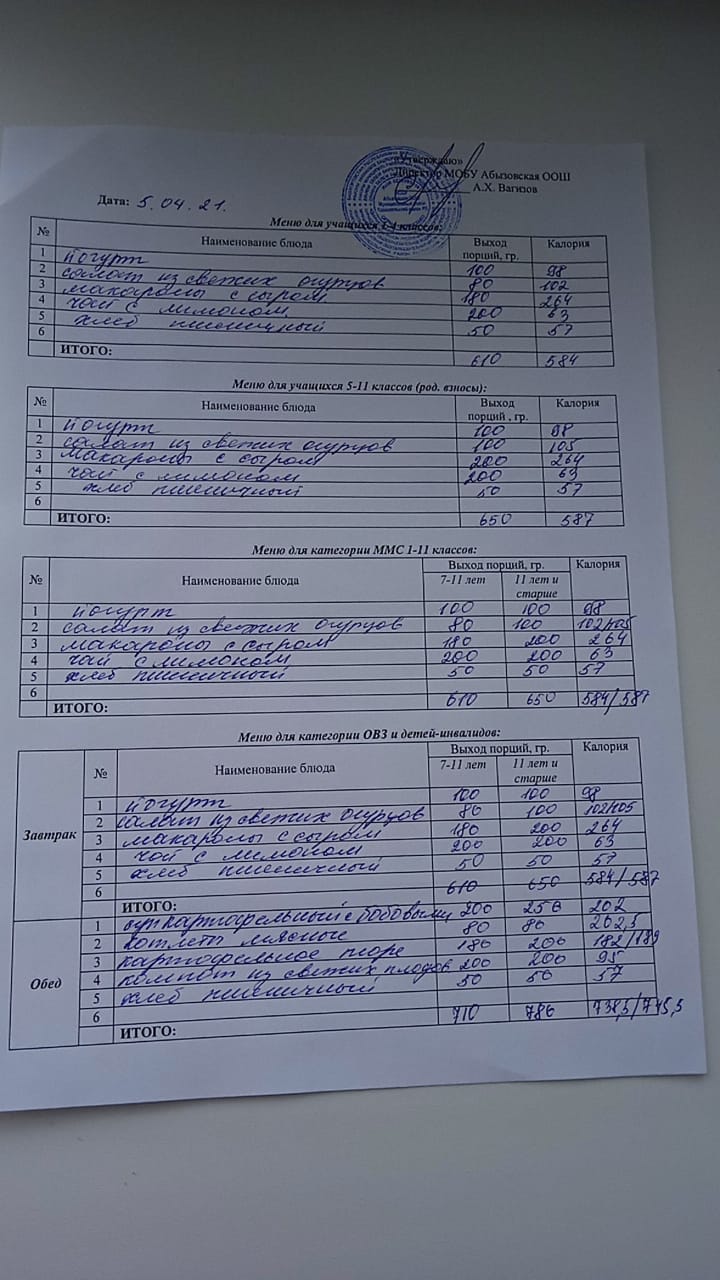 «Утверждаю»
Директор МОБУ Абызовская ООШ
А.Х. Вагизов
Дата: 5.04.21.
Меню для учащихся 1-4 классов:
№ Наименование блюда Выход порций, гр. Калория
1 йогурт 100 98
2 салат из свежих огурцов 80 102
3 макароны с сыром 180 264
4 чай с лимоном 200 63
5 хлеб пшеничный 50 57
6
ИТОГО: 610 584
Меню для учащихся 5-11 классов (род. взносы):
№ Наименование блюда Выход порций , гр. Калория
1 йогурт 100 98
2 салат из свежих огурцов 100 105
3 макароны с сыром 200 264
4 чай с лимоном 200 63
5 хлеб пшеничный 50 57
6
ИТОГО: 650 587
Меню для категории ММС 1-11 классов:
№ Наименование блюда Выход порций, гр. Калория
7-11 лет 11 лет и старше
1 йогурт 100 100 98
2 салат из свежих огурцов 80 100 102/105
3 макароны с сыром 180 200 264
4 чай с лимоном 200 200 63
5 хлеб пшеничный 50 50 57
6
ИТОГО: 610 650 584/587
Меню для категории ОВЗ и детей-инвалидов:
№ Наименование блюда Выход порций, гр. Калория
7-11 лет 11 лет и старше
Завтрак
1 йогурт 100 100 98
2 салат из свежих огурцов 80 100 102/105
3 макароны с сыром 180 200 264
4 чай с лимоном 200 200 63
5 хлеб пшеничный 50 50 57
6
ИТОГО: 610 650 584/587
Обед
1 суп картофельный с бобовыми 200 250 202
2 котлеты мясные 80 80 202,5
3 картофельное пюре 180 200 182/189
4 компот из свежих плодов 200 200 95
5 хлеб пшеничный 50 50 57
6
ИТОГО: 710 780 738,5/745,5